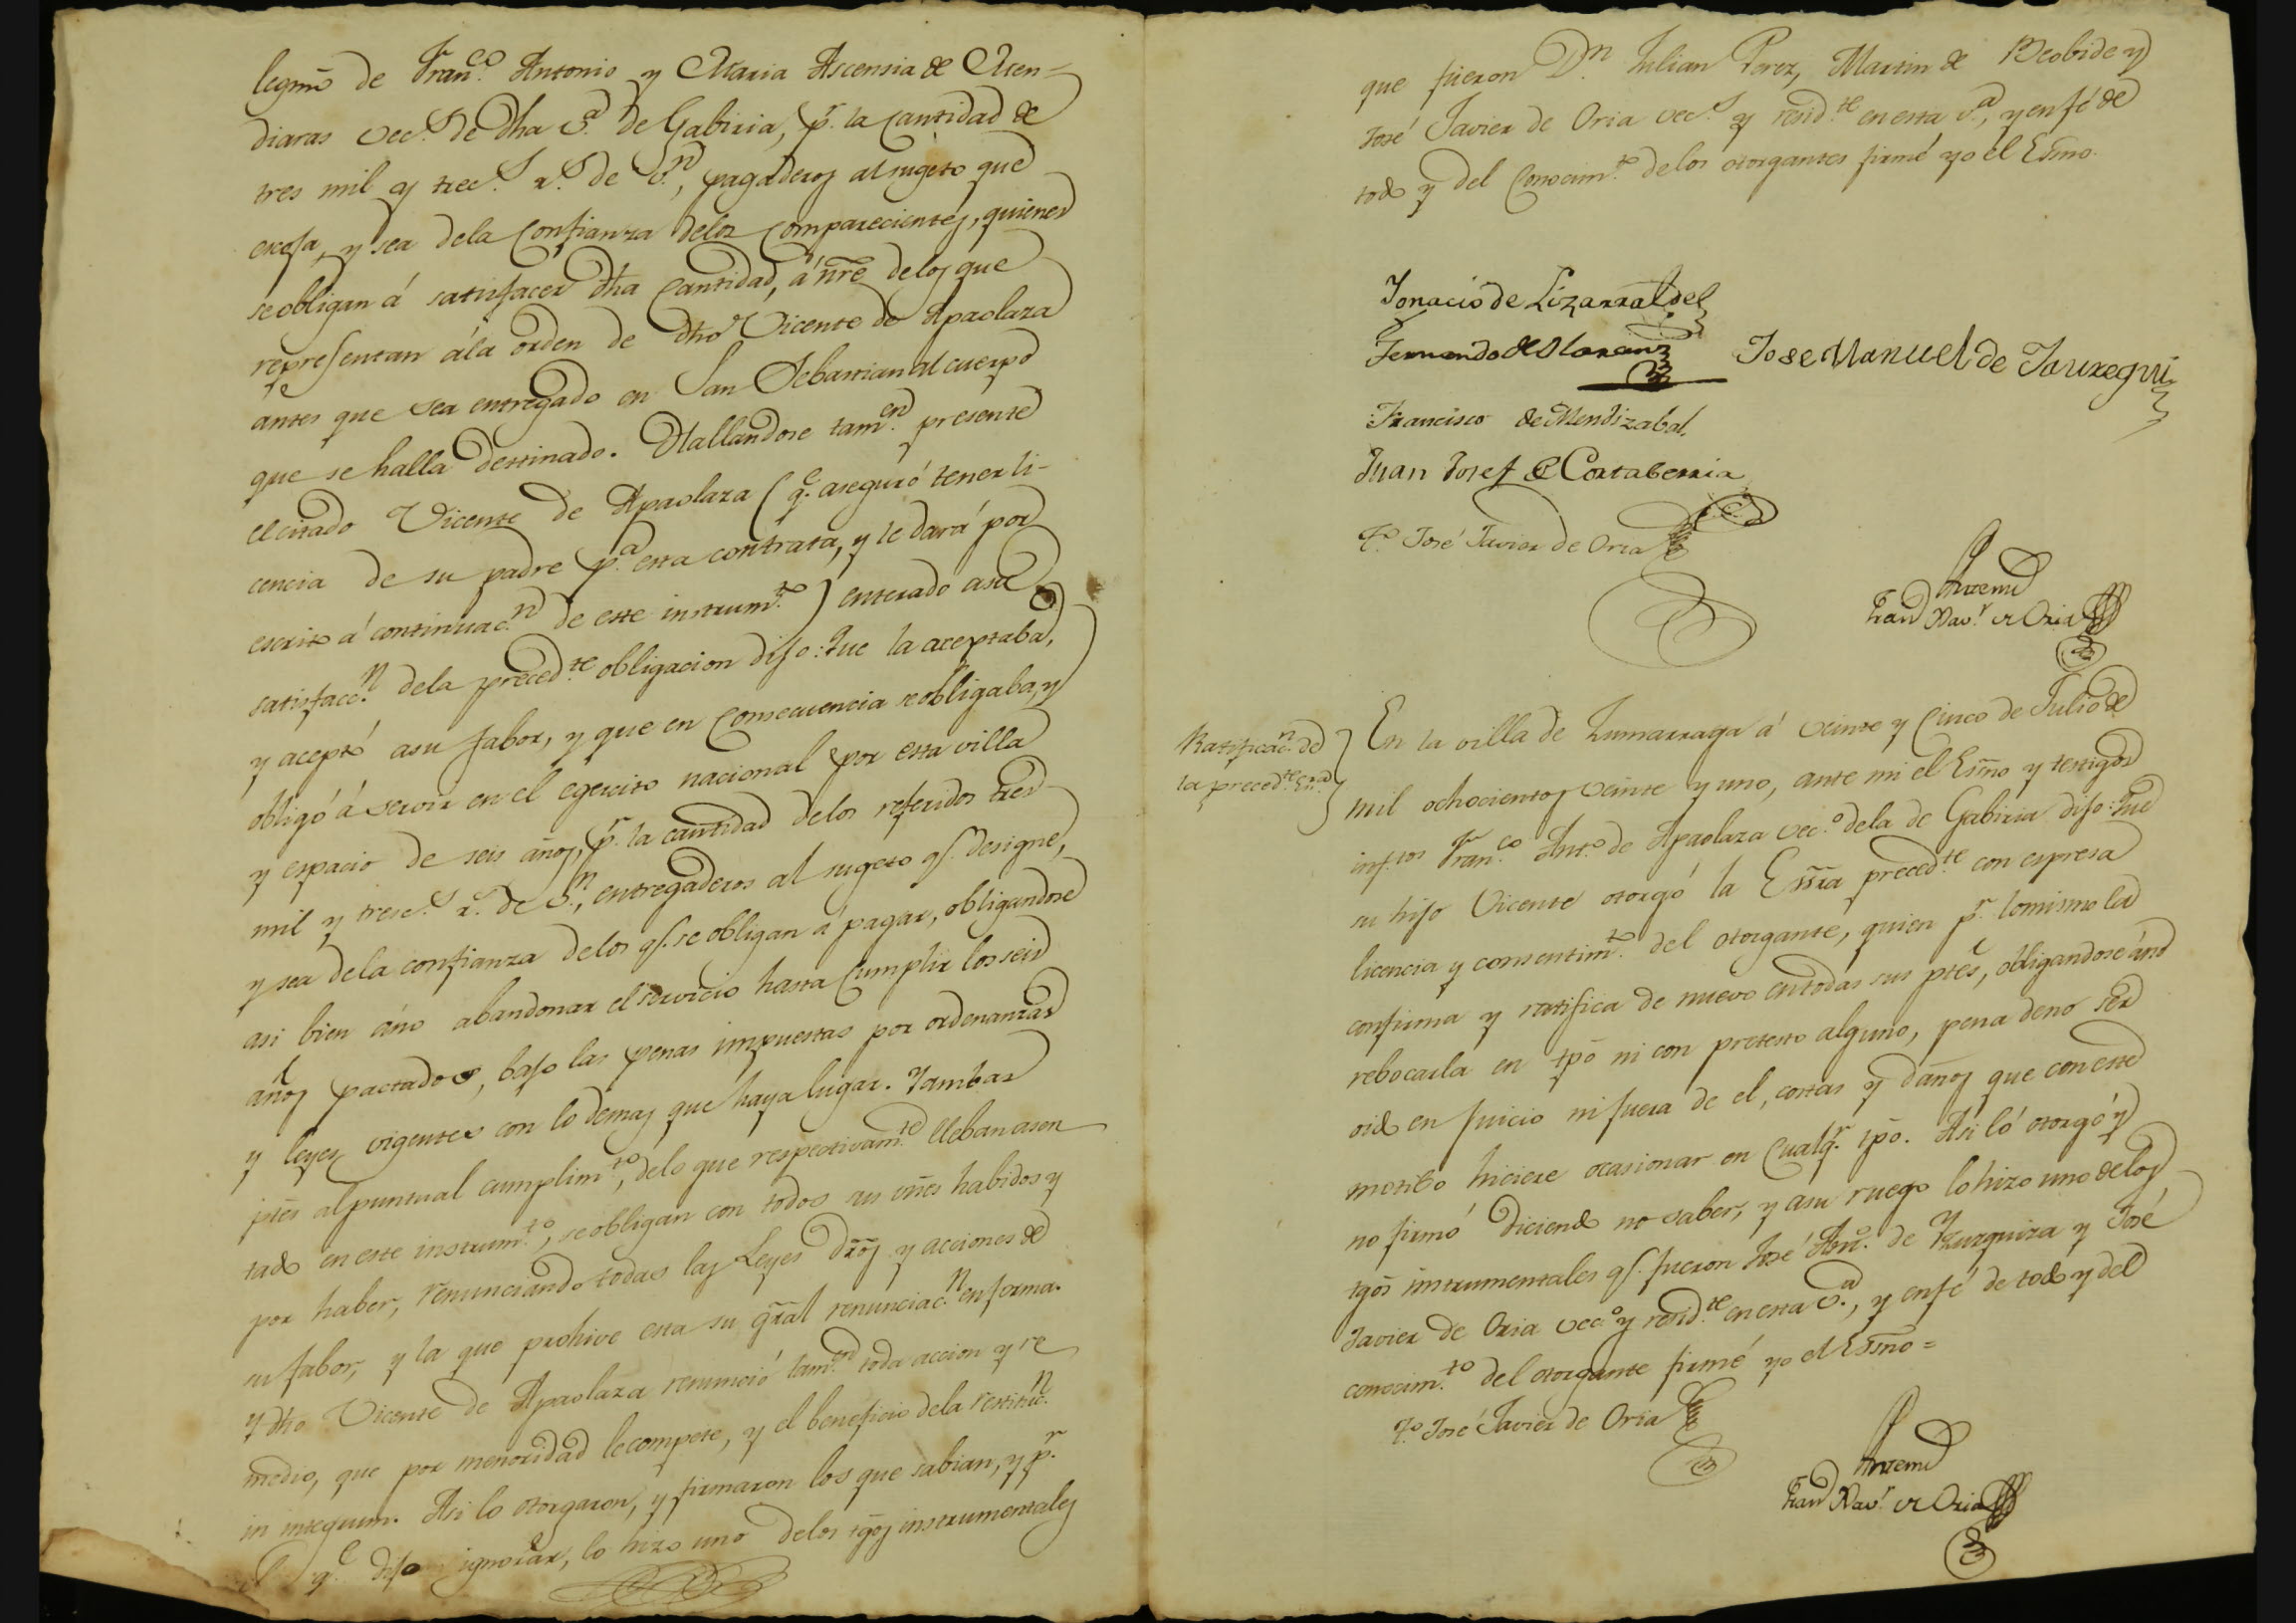 legmo de Fran.co Antonio y Maria Ascensia de Aten=
diaras vec.s de dha v.a de Gabiria, p.r la Cantidad de
tres mil y trec.s r.s de v.n, pagaderos al sugeto que
escoja, y sea dela Confianza delos Comparecientes, quienes
se obligan á satisfacer dha Cantidad, á nre delos que
representan ála orden de dho Vicente de Apaolaza
antes que sea entregado en San Sebastian al cuerpo
que se halla destinado. Hallandose tam.en presente
el citado Vicente de Apaolaza (q.e aseguró tener li-
cencia de su padre p.a esta contrata, y le dará por
escrito á continuac.n de este instrum.to) enterado asu
satisfacc.n dela preced.te obligacion dijo: Que la aceptaba,
y aceptó asu fabor, y que en Consecuencia se obligaba, y
obligó á servir en el egercito nacional por esta villa
y espacio de seis años, p.r la cantidad delos referidos tres
mil y tresc.s r.s de v.n, entregaderos al sugeto q.e designe,
y sea dela confianza delos q.e se obligan á pagar, obligandose
asi bien áno abandonar el servicio hasta Cumplir los seis
años pactados, bajo las penas impuestas por ordenanzas
y leyes vigentes con lo demas que haya lugar. Y ambas
ptes al puntual cumplim.to, delo que respectivam.te lleban asen
tado en este instrum.to, se obligan con todos sus vnes habidos y
por haber, renunciando todas las Leyes dros y acciones de
su fabor, y la que prohive esta su gral renunciac.n en forma.
y dho Vicente de Apaolaza renunció tam.en toda accion y re
medio, que por menoridad le compete, y el beneficio dela restituc.n
in integrum. Asi lo otorgaron, y firmaron los que sabian, y p.r
el q.e dijo ignorar, lo hizo uno delos tgos instrumentales
que fueron D.n Julian Perez, Martin de Beobide y
José Javier de Oria vec.s y resid.te en esta v.a, y en fé de
todo y del Conocim.to delos otorgantes firmé yo el Esno.
Ignacio de Lizarralde
Fernando de Alaranz
Jose Manuel de Jauregui
Francisco de Mendizabal.
Juan Josef de Cortaberria
T.o José Javier de Oria
Antemi
Fran Xav.r de Oria
Ratificac.n de
la preced.te Es.ra
En la villa de Zumarraga á veinte y Cinco de Julio de
mil ochocientos veinte y uno, ante mi el Esno y testigos
inf.tos Fran.co Ant.o de Apaolaza vec.o dela de Gabiria dijo: Que
su hijo Vicente otorgó la Essra preced.te con espresa
licencia y consentim.to del otorgante, quien p.r lo mismo la
confirma y ratifica de nuevo en todas sus ptes, obligandose áno
rebocarla en tpo ni con pretesto alguno, pena de no ser
oido en juicio ni fuera de el, costas y daños que con este
motibo hiciere ocasionar en Cualq.r tpo. Asi lo otorgó y
no firmó diciendo no saber, y asu ruego lo hizo uno delos
tgos instrumentales q.e fueron José Ant.o de Yzurquiza y José
Javier de Oria vec.o y resid.te en esta v.a, y en fé de todo y del
conocim.to del otorgante firmé yo el Esno=
T.o José Javier de Oria
Antemi
Fran Xav.r de Oria